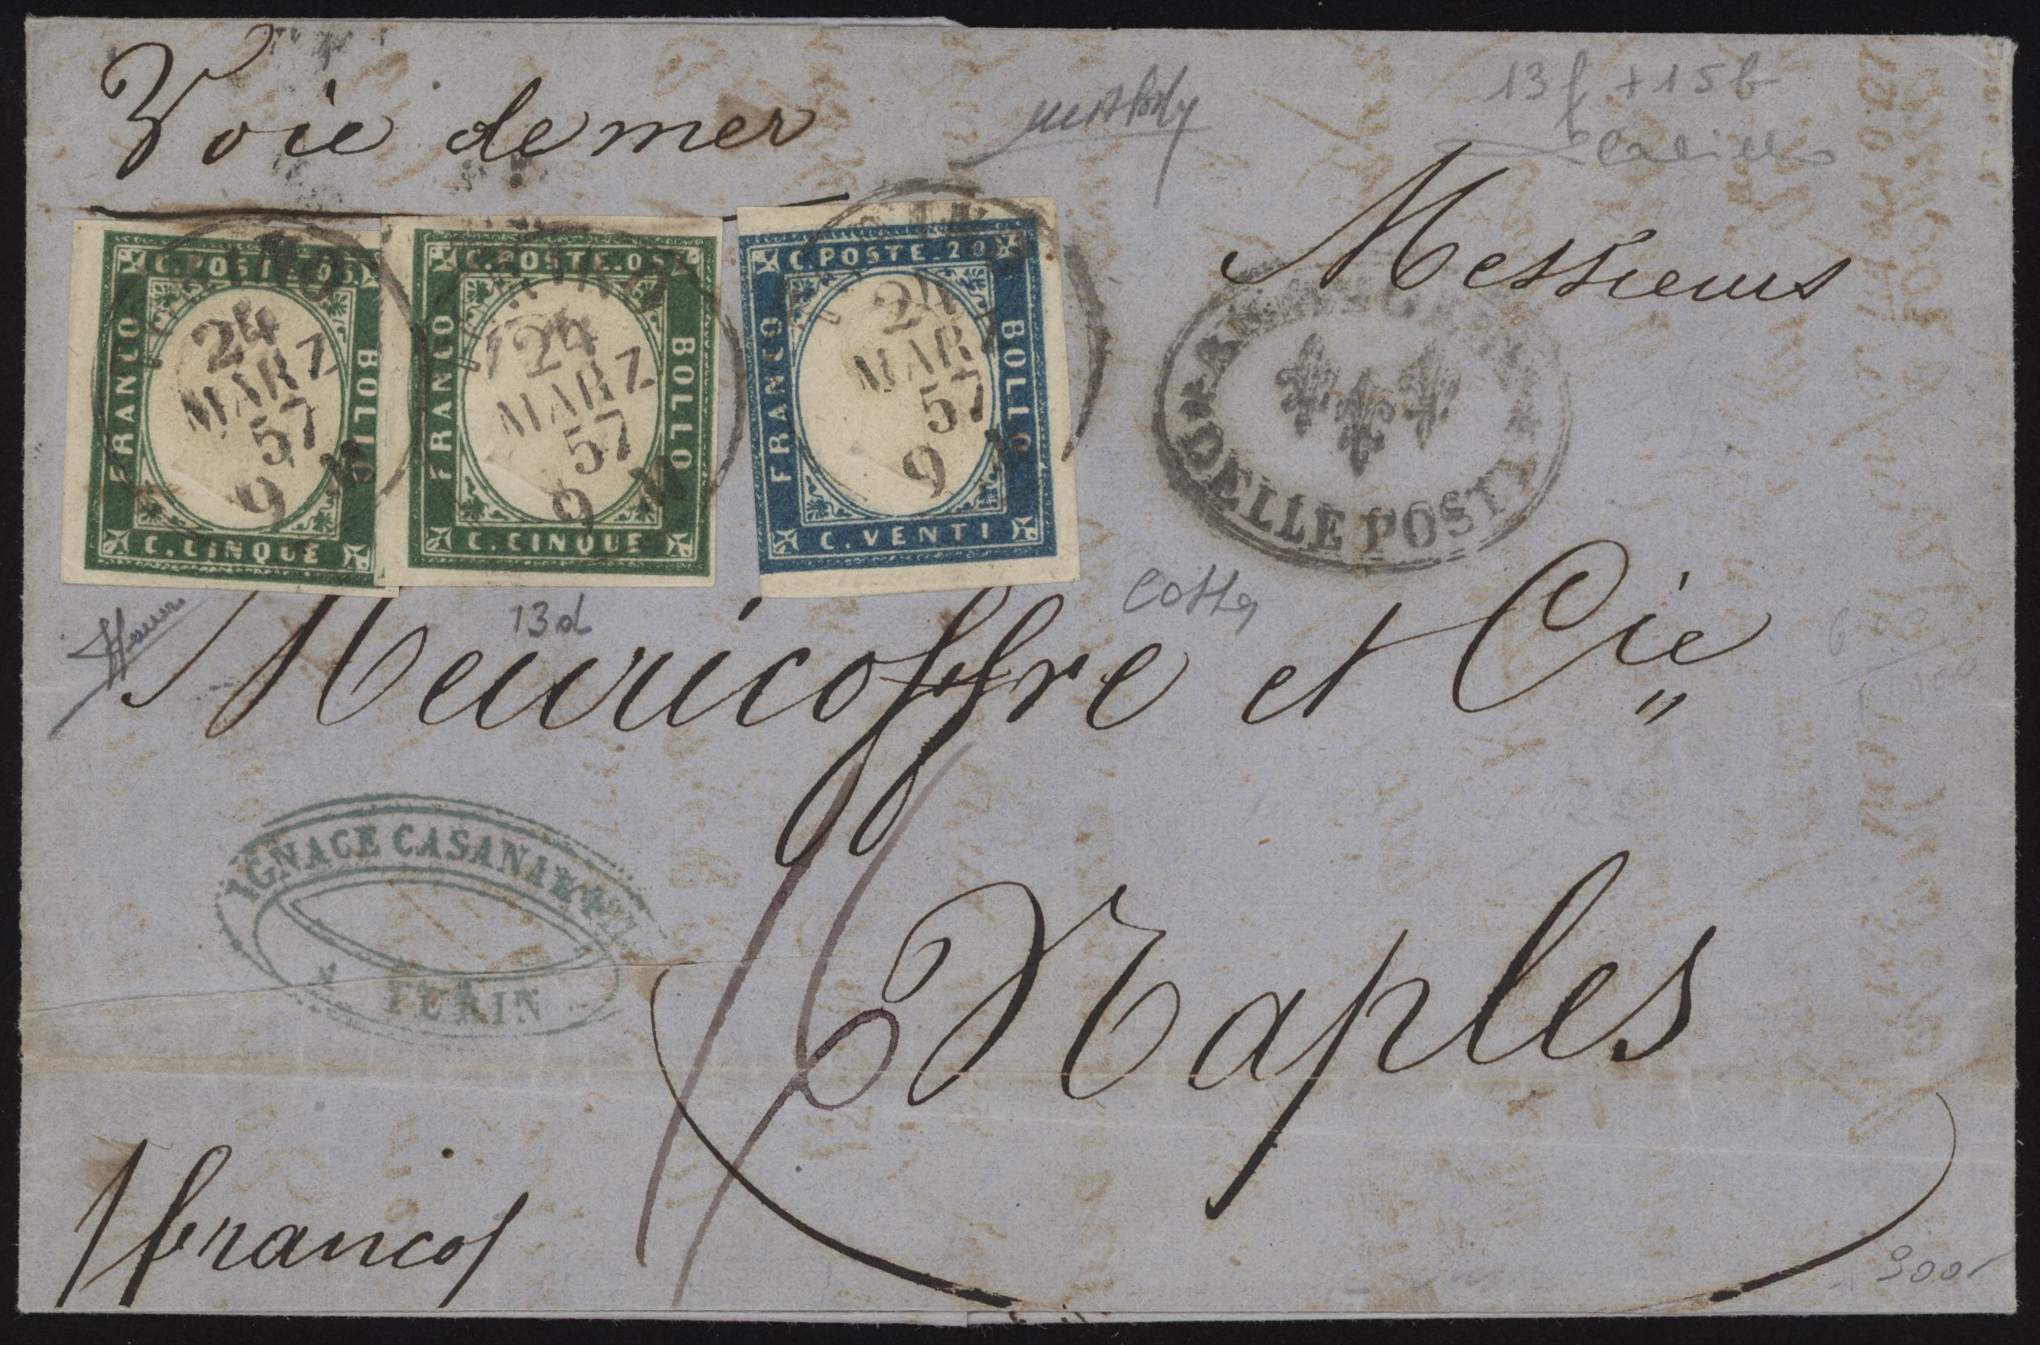 Voie de mer
13 f + 15 b
Messieurs
C. POSTE. 05
FRANCO
BOLLO
C. CINQUE
TORINO
24
MARZ
57
9 M
C. POSTE. 05
FRANCO
BOLLO
C. CINQUE
24
MARZ
57
9 M
C. POSTE. 20
FRANCO
BOLLO
C. VENTI
24
MARZ
57
9 M
DELLE POSTE
13d
Meuricoffre et Cie
IGNACE CASANA
TURIN
16
Naples
franco